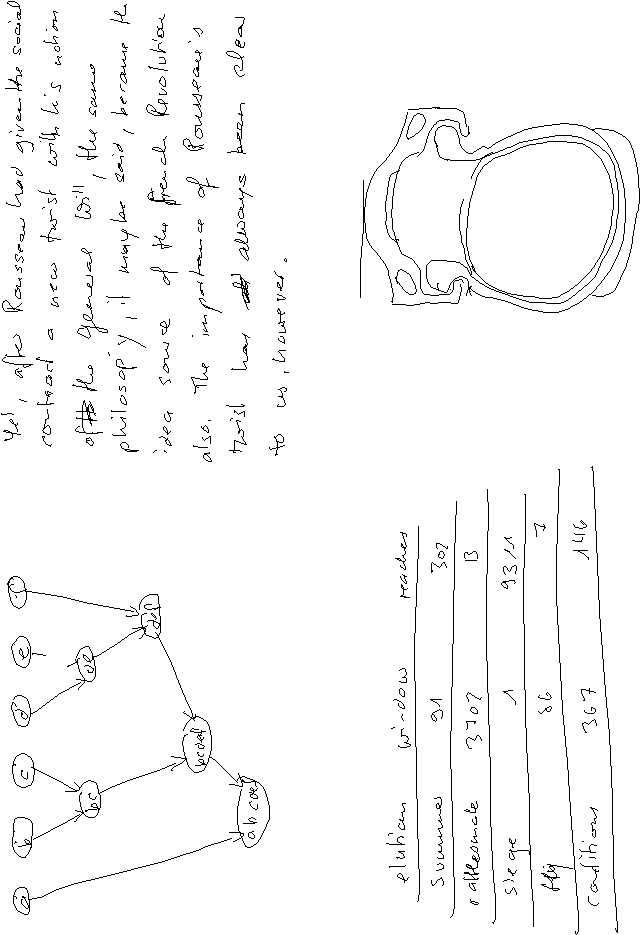 Yet, after Rousseau had given the social
contract a new twist with his notion
of the General Will, the same
philosophy, it may be said, became the
idea source of the French Revolution
also. The importance of Rousseau's
twist has always been clear
to us, however.
a b c d e f
bc de
def
bcdef
abcdef
elution window reaches
summer 91 302
rattlesnake 3702 13
siege 1 9311
fly 86 7
conditions 367 146